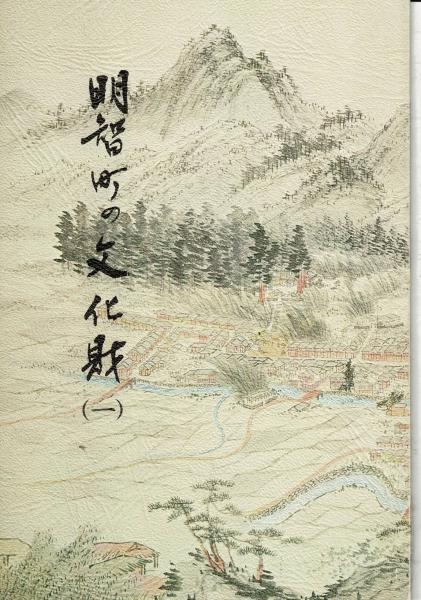 明智町の文化財
(一)